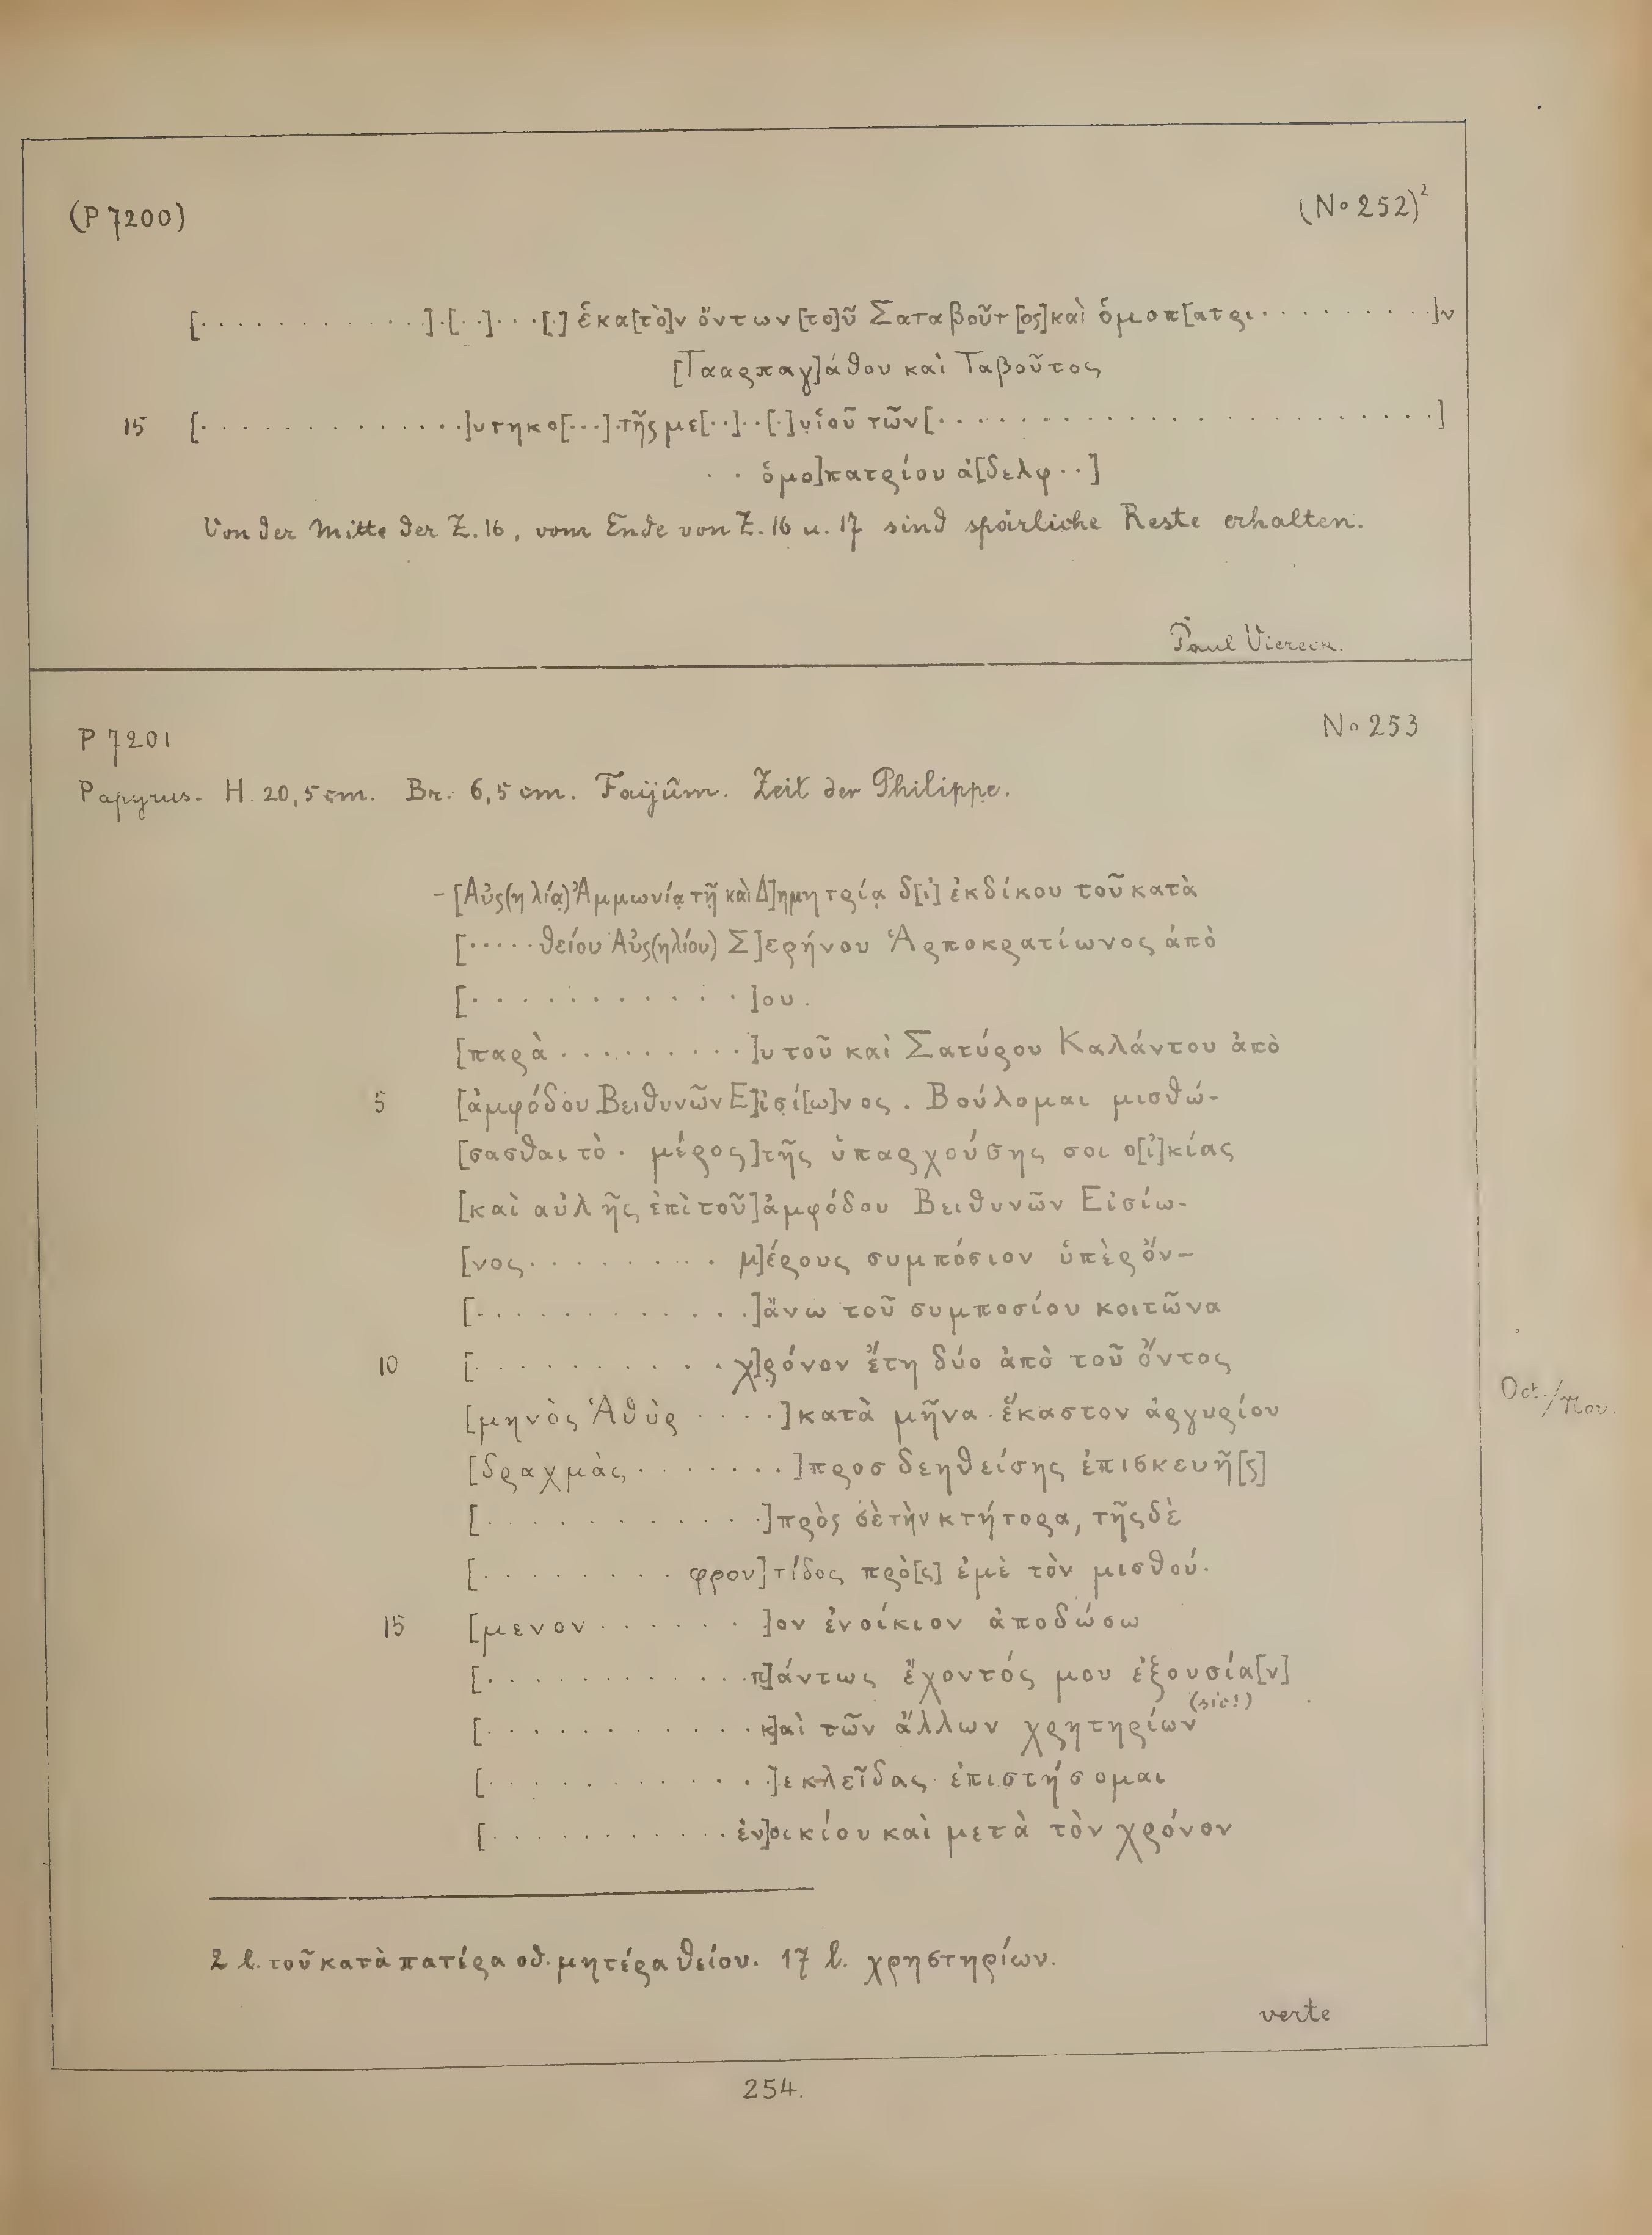 (P 7200) (No 252)²
[· · · · · · · · · · · ·]·[··]···[·] ἑκα[τὸ]ν ὄντων [το]ῦ Σαταβοῦτ[ος] καὶ ὁμοπ[ατρι· · · · · · · · ·]ν
[Τααρπαγ]άθου καὶ Ταβοῦτος
15 [· · · · · · · · · · · · ·]υτηκο[···]·τῆς με[··]··[·]υἱοῦ τῶν[· · · · · · · · · · · · · · · · · · · · · ·]
· · ὁμο]πατρίου ἀ[δελφ··]
Von der Mitte der Z. 16, vom Ende von Z. 16 u. 17 sind spärliche Reste erhalten.
Paul Viereck.
P 7201 No 253
Papyrus. H. 20,5 cm. Br. 6,5 cm. Faijûm. Zeit der Philippe.
– [Αὐρ(ηλίᾳ) Ἀμμωνίᾳ τῇ καὶ Δ]ημητρίᾳ δ[ι'] ἐκδίκου τοῦ κατὰ
[····· θείου Αὐρ(ηλίου) Σ]ερήνου Ἁρποκρατίωνος ἀπὸ
[· · · · · · · · · · · ·]ου.
[παρὰ · · · · · · · · ·]υ τοῦ καὶ Σατύρου Καλάντου ἀπὸ
5 [ἀμφόδου Βειθυνῶν Ε]ἰσί[ω]νος. Βούλομαι μισθώ-
[σασθαι τὸ · μέρος] τῆς ὑπαρχούσης σοι ο[ἰ]κίας
[καὶ αὐλῆς ἐπὶ τοῦ] ἀμφόδου Βειθυνῶν Εἰσίω-
[νος · · · · · · · · μ]έρους συμπόσιον ὑπὲρ ὅν-
[· · · · · · · · · · · ·]ἄνω τοῦ συμποσίου κοιτῶνα
10 [· · · · · · · · · · · χ]ρόνον ἔτη δύο ἀπὸ τοῦ ὄντος
[μηνὸς Ἁθὺρ · · · ·] κατὰ μῆνα ἕκαστον ἀργυρίου
Oct./Nov.
[δραχμὰς · · · · · · ·] προσδεηθείσης ἐπισκευῆ[ς]
[· · · · · · · · · · · · ·] πρὸς σὲ τὴν κτήτορα, τῆς δὲ
[· · · · · · · · · φρον]τίδος πρὸ[ς] ἐμὲ τὸν μισθού·
15 [μενον · · · · · · ·]ον ἐνοίκιον ἀποδώσω
[· · · · · · · · · · · · π]άντως ἔχοντός μου ἐξουσία[ν]
[· · · · · · · · · · · · κ]αὶ τῶν ἄλλων χρητηρίων (sic!)
[· · · · · · · · · · · · ·]εκλεῖδας ἐπιστήσομαι
[· · · · · · · · · · · ἐν]οικίου καὶ μετὰ τὸν χρόνον
2 l. τοῦ κατὰ πατέρα od. μητέρα θείου. 17 l. χρηστηρίων.
verte
254.